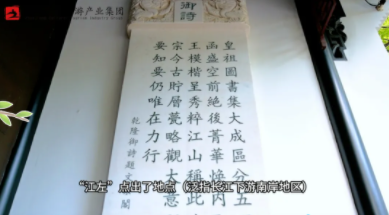 游产业集团
御詩
皇祖圖書集大成區分五
函盛空前絕後菁華煥內
王模楷呈秀粹江山稱此
宗今古貯層甍略觀大意
要知要仍唯在力行
乾隆御詩題文
閣
“江左”点出了地点（泛指长江下游南岸地区）